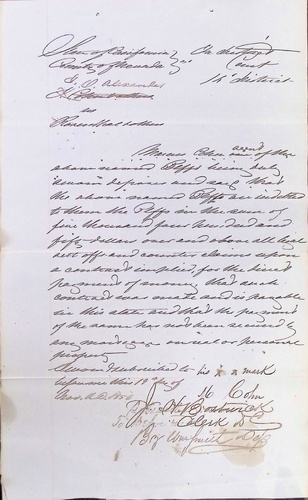 State of California
County of Nevada ss
In District
Court
14th District
E. D. Alexander
vs
Rosenthal
Moses Cohn agent of the
above named Plffs being duly
sworn deposes and says that
the above named Deft are indebted
to them the Plffs in the sum of
five thousand four hundred and
fifty dollars over and above all legal
set offs and counter claims upon
a contract implied, for the direct
payment of money that such
contract was made and is payable
in this state and that the payment
of the same has not been secured by
any mortgage on real or personal
property
Sworn & subscribed to his x mark
before me this 19th day of
M Cohn
Bostwick
Clerk DC
By Dep